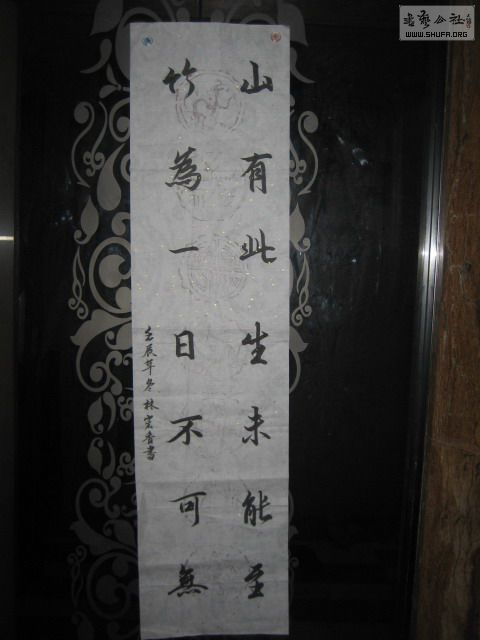 山有此生未能至
竹為一日不可無
壬辰年冬林宏香書
書藝公社
WWW.SHUFA.ORG